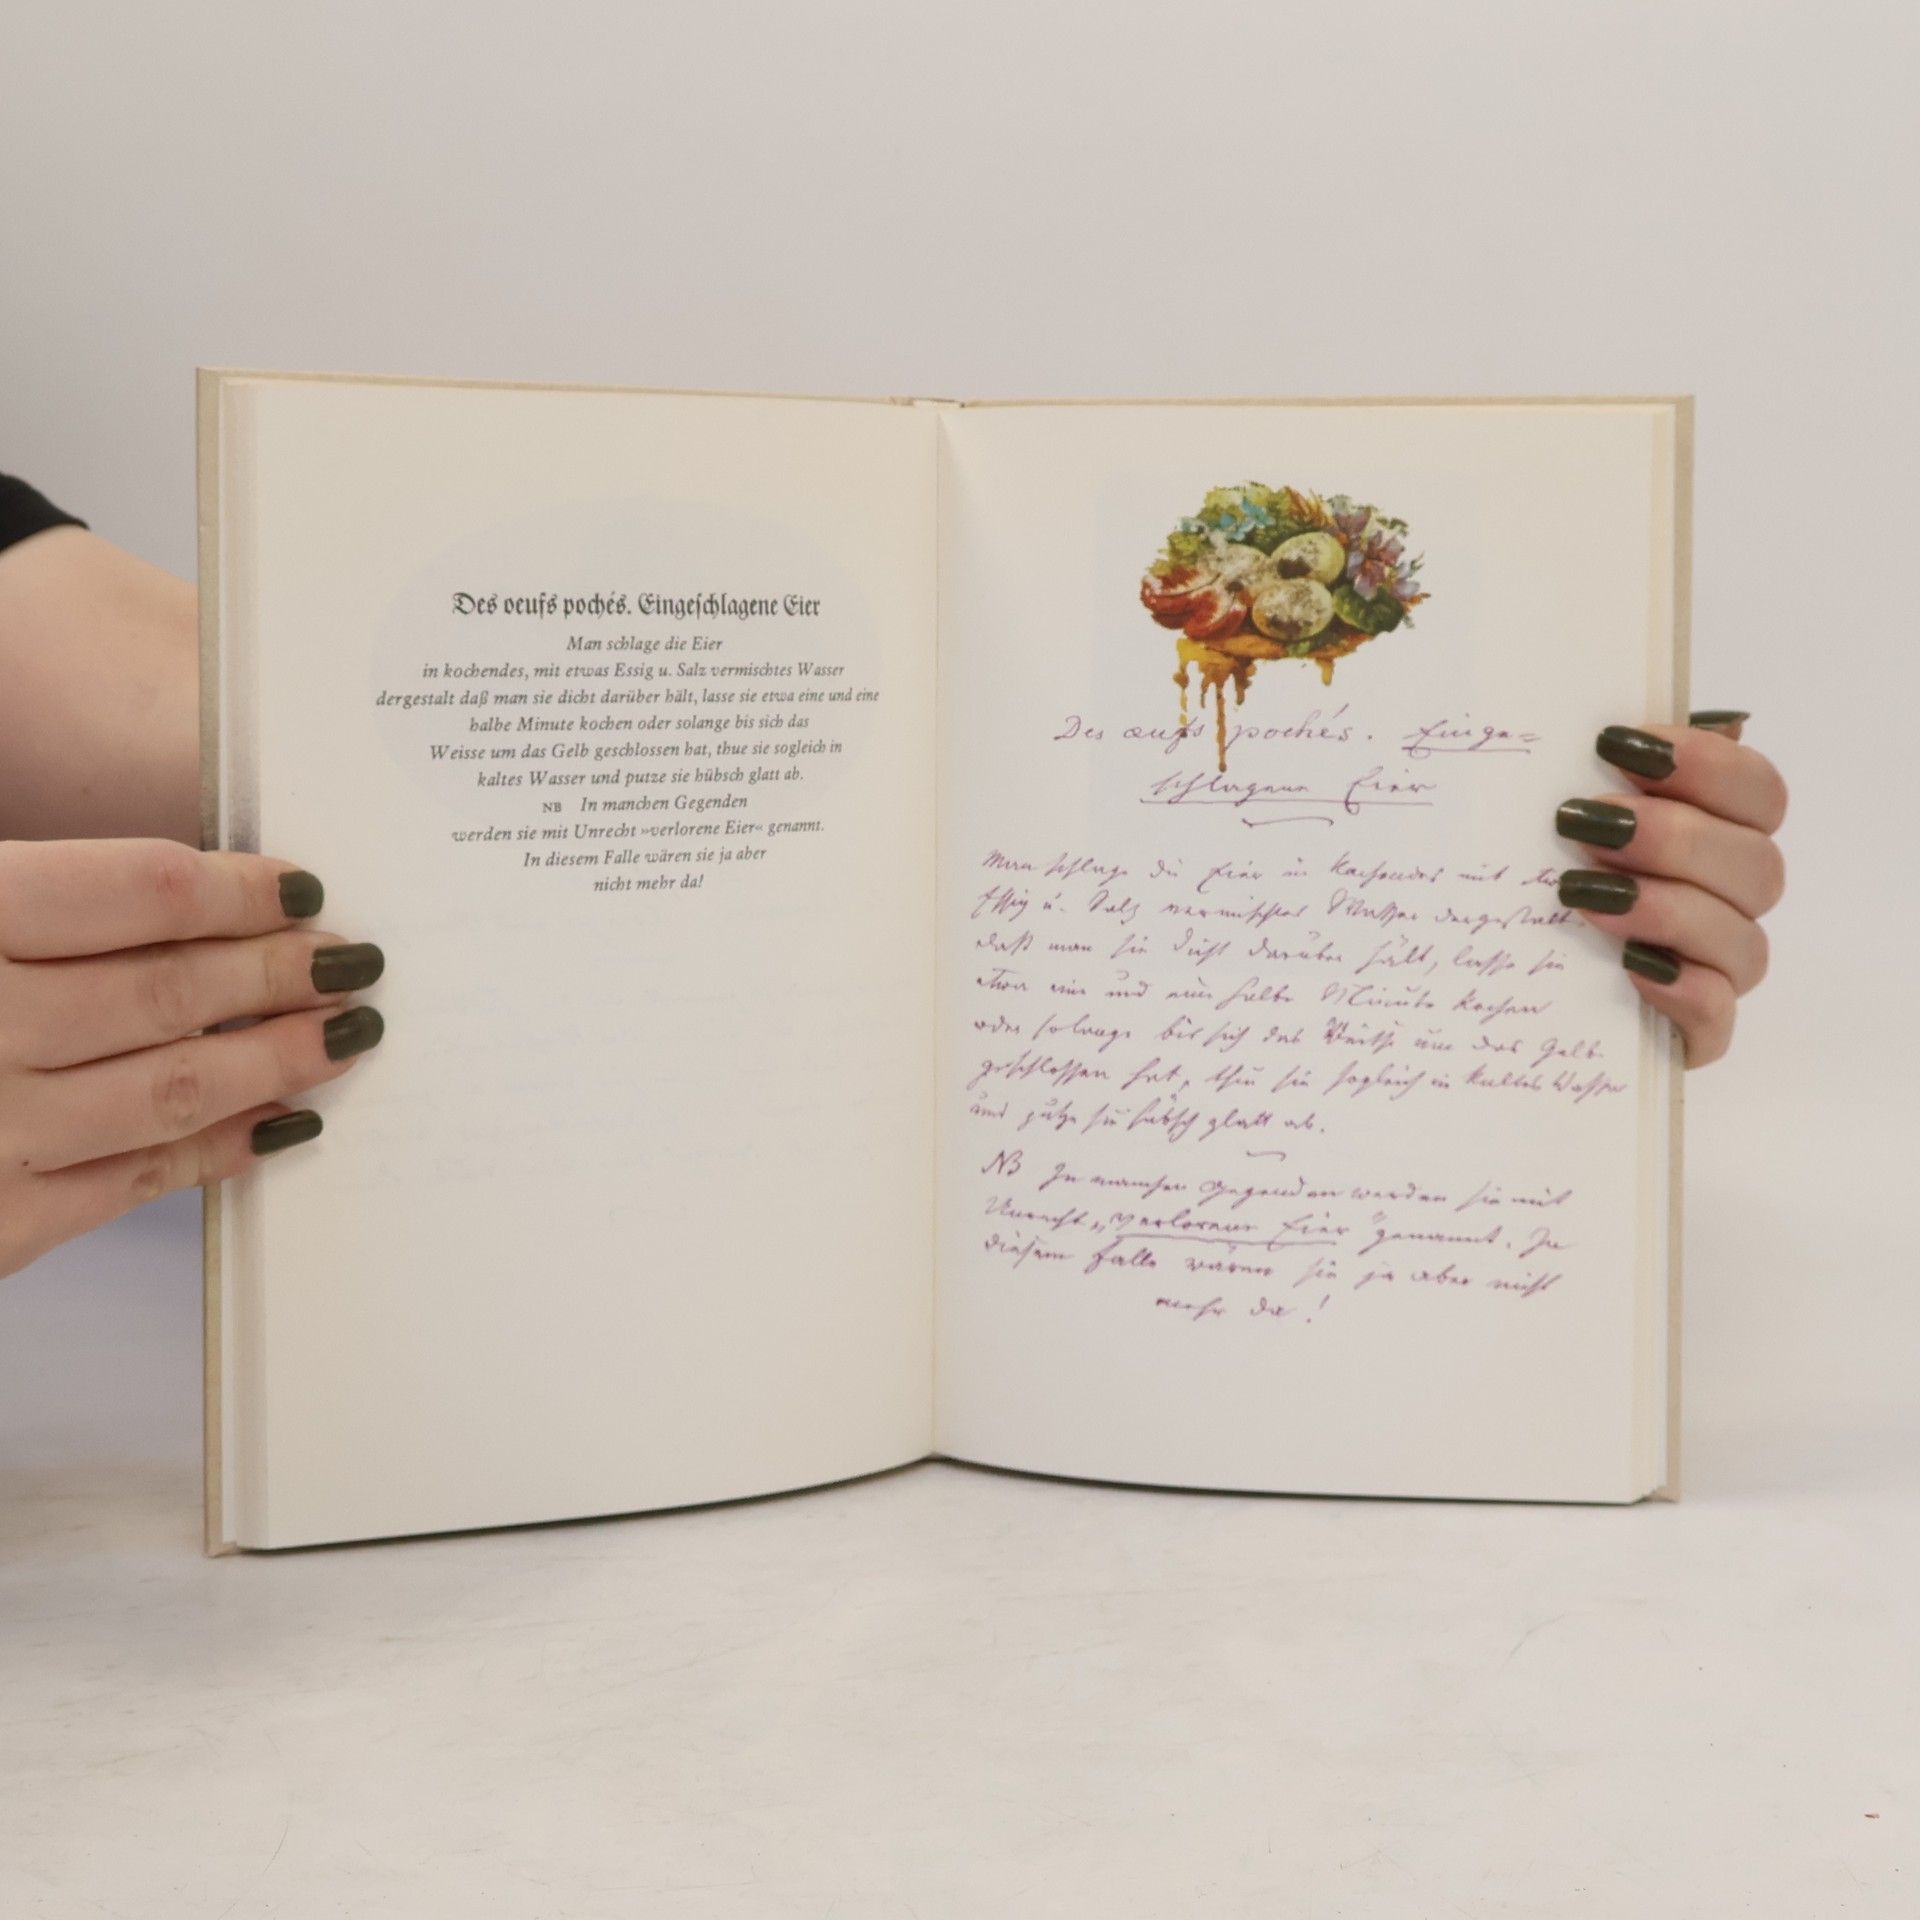 Des oeufs pochés. Eingeschlagene Eier
Man schlage die Eier
in kochendes, mit etwas Essig u. Salz vermischtes Wasser
dergestalt daß man sie dicht darüber hält, lasse sie etwa eine und eine
halbe Minute kochen oder solange bis sich das
Weisse um das Gelb geschlossen hat, thue sie sogleich in
kaltes Wasser und putze sie hübsch glatt ab.
NB In manchen Gegenden
werden sie mit Unrecht »verlorene Eier« genannt.
In diesem Falle wären sie ja aber
nicht mehr da!
Des œufs pochés. Einge=
schlagene Eier
Man schlage die Eier in kochendes mit etwas
Essig u. Salz vermischtes Wasser dergestalt
daß man sie dicht darüber hält, lasse sie
etwa eine und eine halbe Minute kochen
oder solange bis sich das Weiße um das Gelb
geschlossen hat, thue sie sogleich in kaltes Wasser
und putze sie hübsch glatt ab.
NB In manchen Gegenden werden sie mit
Unrecht „verlorene Eier" genannt. In
diesem Falle wären sie ja aber nicht
mehr da!